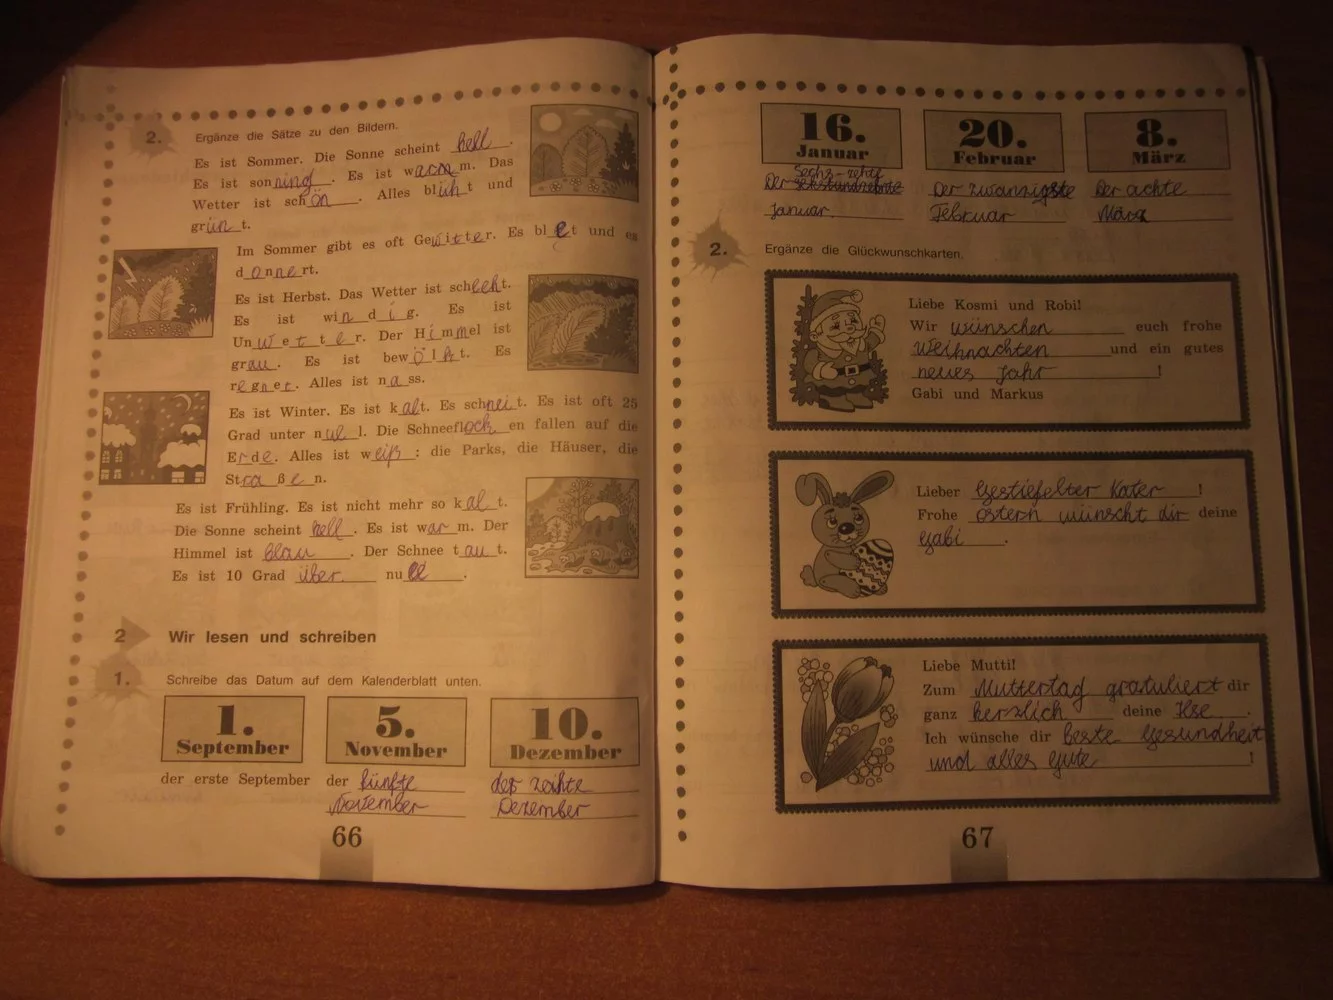 2. Ergänze die Sätze zu den Bildern.
Es ist Sommer. Die Sonne scheint hell.
Es ist sonning. Es ist warm. Das
Wetter ist schön. Alles blüht und
grünt.
Im Sommer gibt es oft Gewitter. Es blet und es
donnert.
Es ist Herbst. Das Wetter ist schleht.
Es ist windig. Es ist
Unwetter. Der Himmel ist
grau. Es ist bewölkt. Es
regnet. Alles ist nass.
Es ist Winter. Es ist kalt. Es schneit. Es ist oft 25
Grad unter null. Die Schneeflocken fallen auf die
Erde. Alles ist weiß: die Parks, die Häuser, die
Straßen.
Es ist Frühling. Es ist nicht mehr so kalt.
Die Sonne scheint hell. Es ist warm. Der
Himmel ist blau. Der Schnee taut.
Es ist 10 Grad über null.
2 Wir lesen und schreiben
1. Schreibe das Datum auf dem Kalenderblatt unten.
1. September
5. November
10. Dezember
der erste September
der fünfte
November
der zehte
Dezember
66
16. Januar
20. Februar
8. März
Sechs-zehte
Der
Januar.
Der zwanzigste
Februar
Der achte
März
2. Ergänze die Glückwunschkarten.
Liebe Kosmi und Robi!
Wir wünschen euch frohe
Weihnachten und ein gutes
neues Jahr!
Gabi und Markus
Lieber Gestiefelter Kater!
Frohe ostern wünscht dir deine
Gabi.
Liebe Mutti!
Zum Muttertag gratuliert dir
ganz herzlich deine Ilse.
Ich wünsche dir beste Gesundheit
und alles Gute!
67